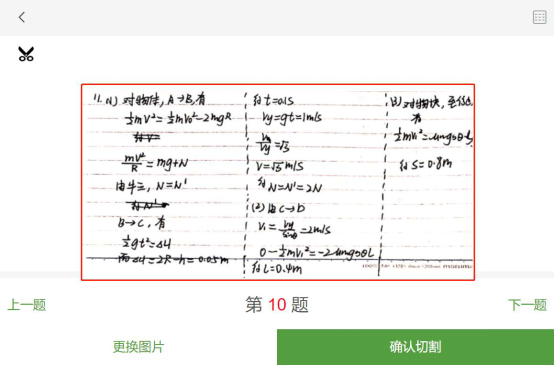 11. (1) 对物体，A→B，有
½mV²=½mV₀²-2mgR
mV²/R=mg+N
由牛三，N=N'
B→C，有
½gt²=ΔH
而ΔH=2R-h=0.05m
得t=0.1s
Vy=gt=1m/s
V₀/Vy=√3
V=√3m/s
得N=N'=2N
(2) 由C→D
V₁=Vy/sinθ=2m/s
0-½mV₁²=-2μmgcosθL
得L=0.4m
(3) 对物块，至
有
½mV₁²=μmgcosθS
得S=0.8m
上一题
第 10 题
下一题
更换图片
确认切割